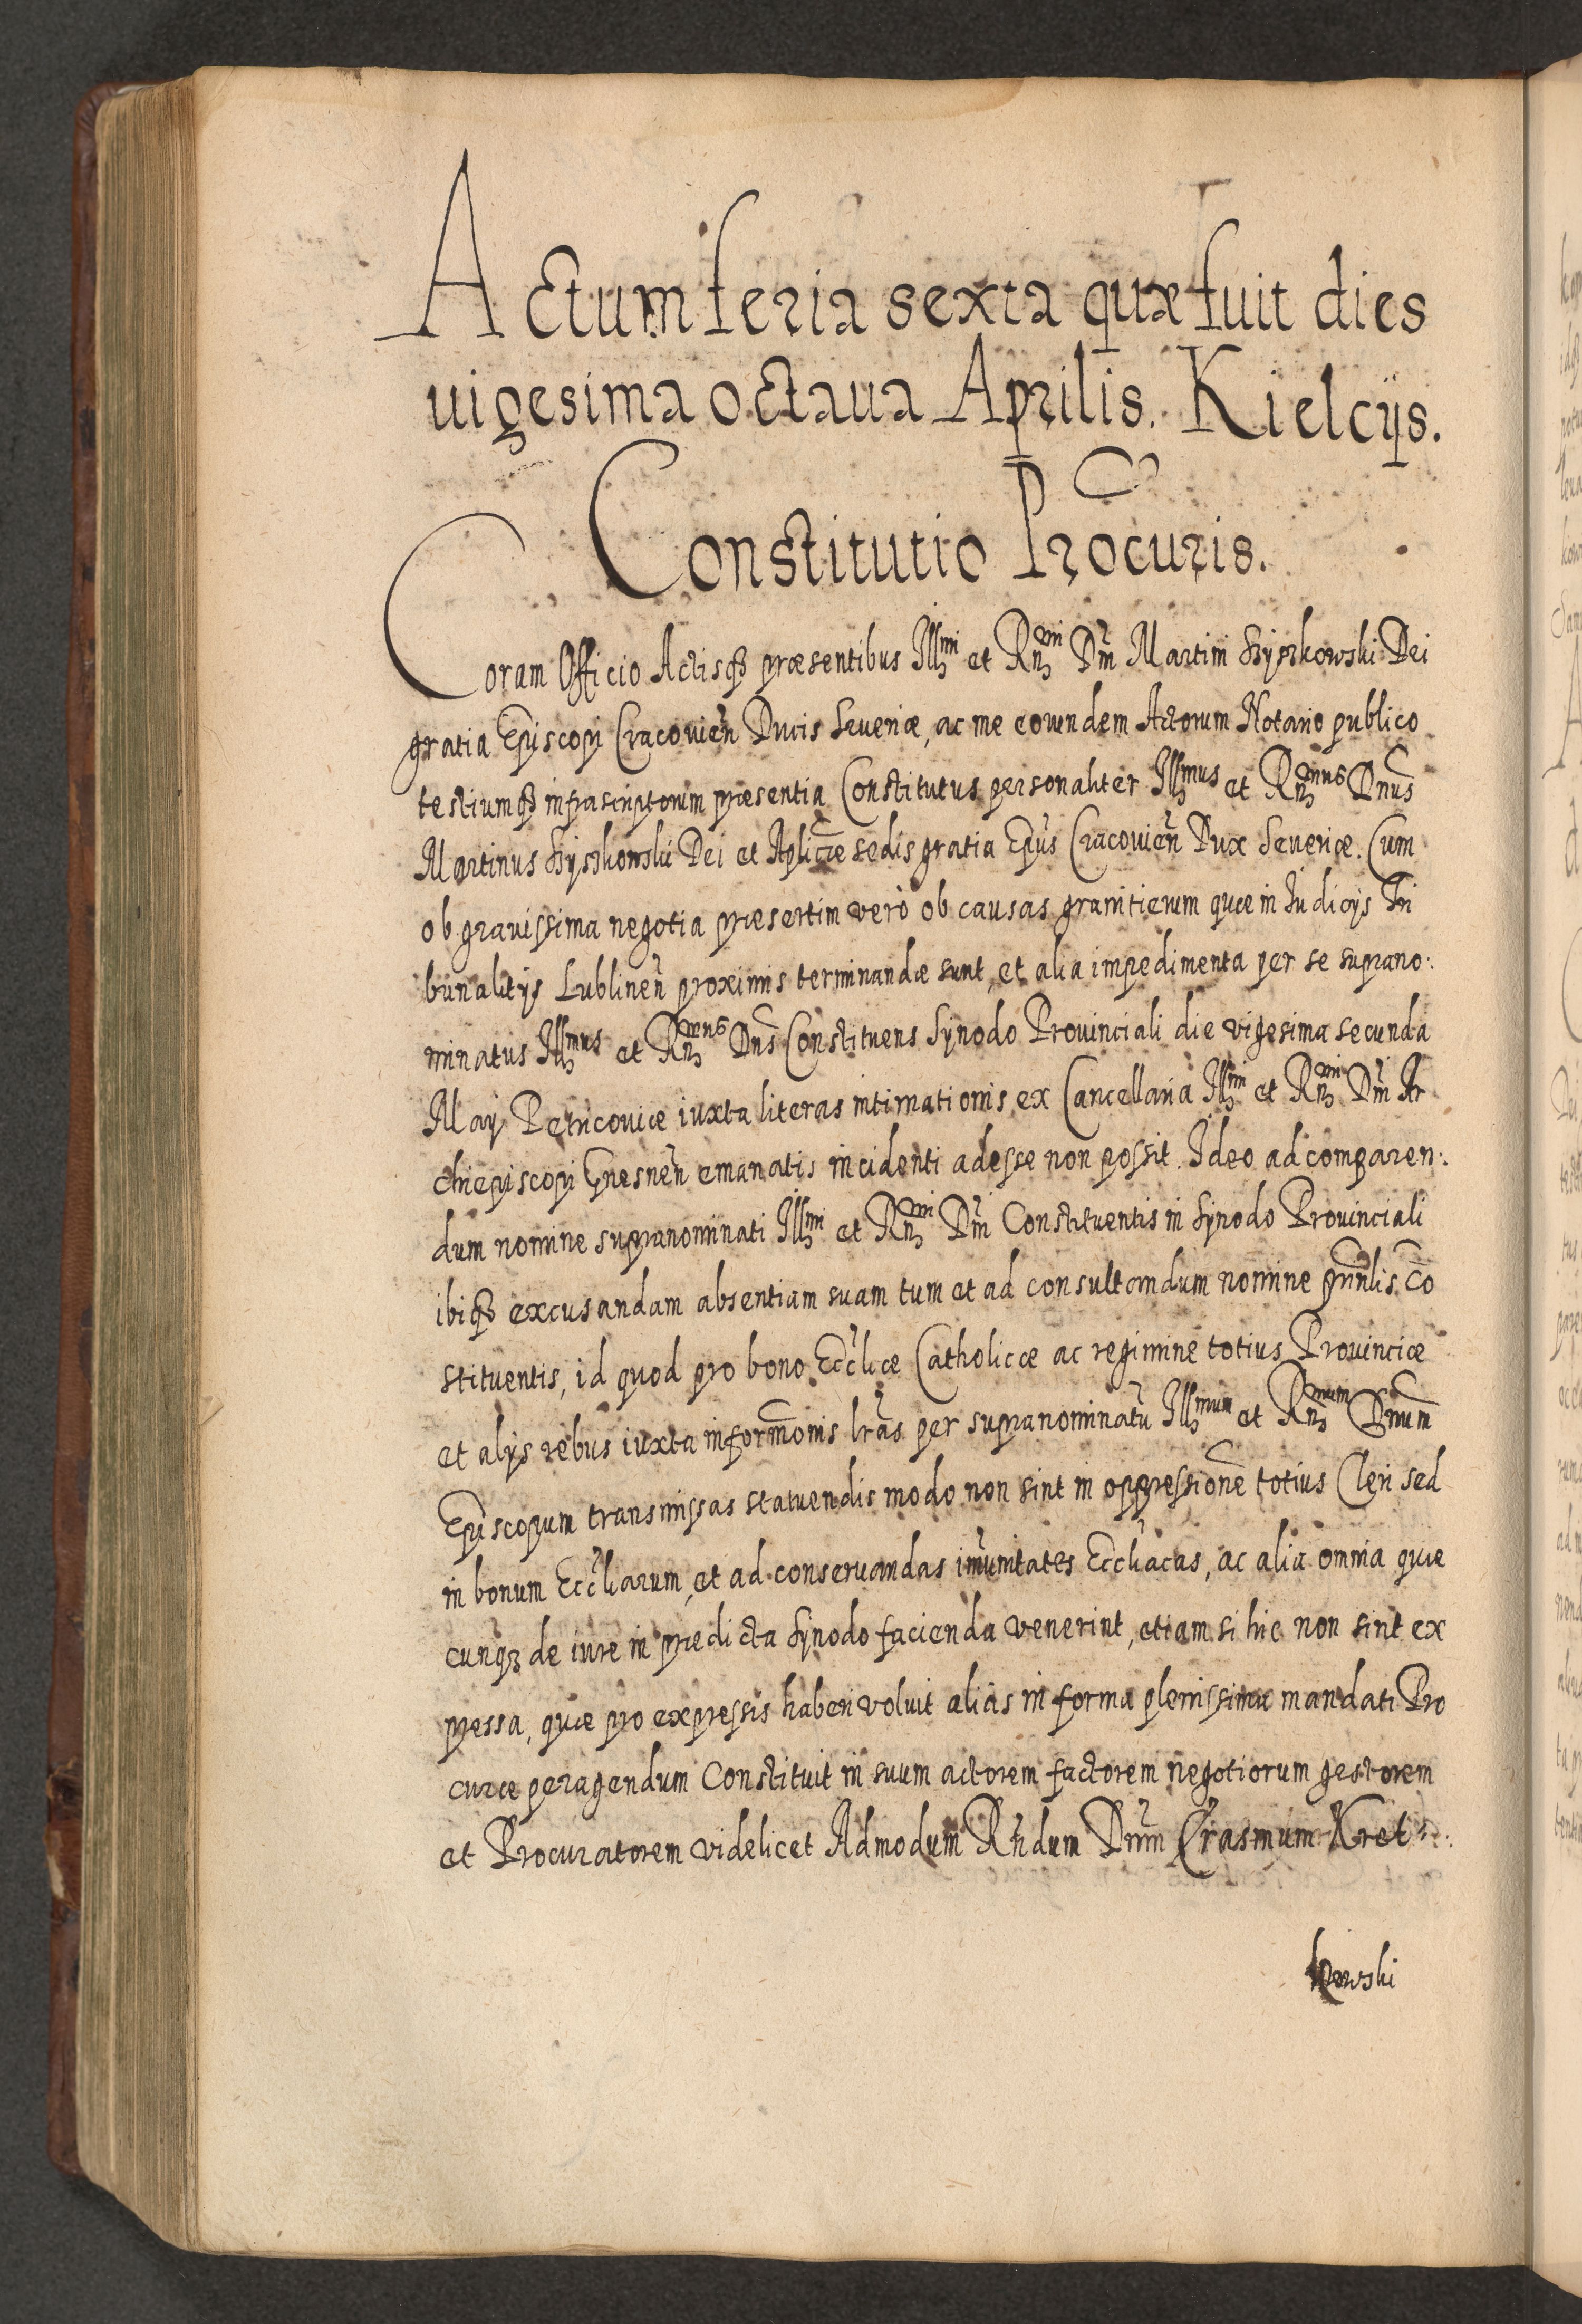 Actum feria sexta quæ fuit dies
uigesima octaua Aprilis. Kielcijs.
Constitutio Procuris.
Coram Officio Actisq3 præsentibus Illmi et Rmi Dni Martini Szyszkowski Dei
gratia Episcopi Cracouien̄ Ducis Seueriæ, ac me eorundem Actorum Notario publico
testiumq3 infrascriptorum præsentia Constitutus personaliter Illmus et Rmus Dnus
Martinus Szyszkowski Dei et Aplicæ sedis gratia Epūs Cracouien̄ Dux Seueriæ. Cum
ob grauissima negotia præsertim verò ob causas granitierum quæ in Iudicijs Tri
bunalitijs Lublinen̄ proximis terminandæ sunt, et alia impedimenta per se suprano:
minatus Illmus et Rmus Dns Constituens Synodo Prouinciali die vigesima secunda
Maij Petricouiæ iuxta literas intimationis ex Cancellaria Illmi et Rmi Dni Ar
chiepiscopi Gnesnen̄ emanatis incidenti adesse non possit. Ideo ad comparen:
dum nomine supranominati Illmi et Rmi Dni Constituentis in Synodo Prouinciali
ibiq3 excusandam absentiam suam tum et ad consultandum nomine Co
stituentis, id quod pro bono Ecclīæ Catholicæ ac regimine totius Prouinciæ
et alijs rebus iuxta informōnis lrās per supranominatū Illmum et Rmum Dnum
Episcopum transmissas statuendis modo non sint in oppressionē totius Cleri sed
in bonum Ecclīarum, et ad conseruandas imūnitates Ecclīacas, ac alia omnia quæ
cunq3 de iure in prædicta Synodo facienda venerint, etiam si hic non sint ex
pressa, quæ pro expressis haberi voluit aliàs in forma plenissima mandati Pro
curæ peragendum Constituit in suum actorem factorem negotiorum gestorem
et Procuratorem videlicet Admodum Rndum Dnum Erasmum Kret:
kowski